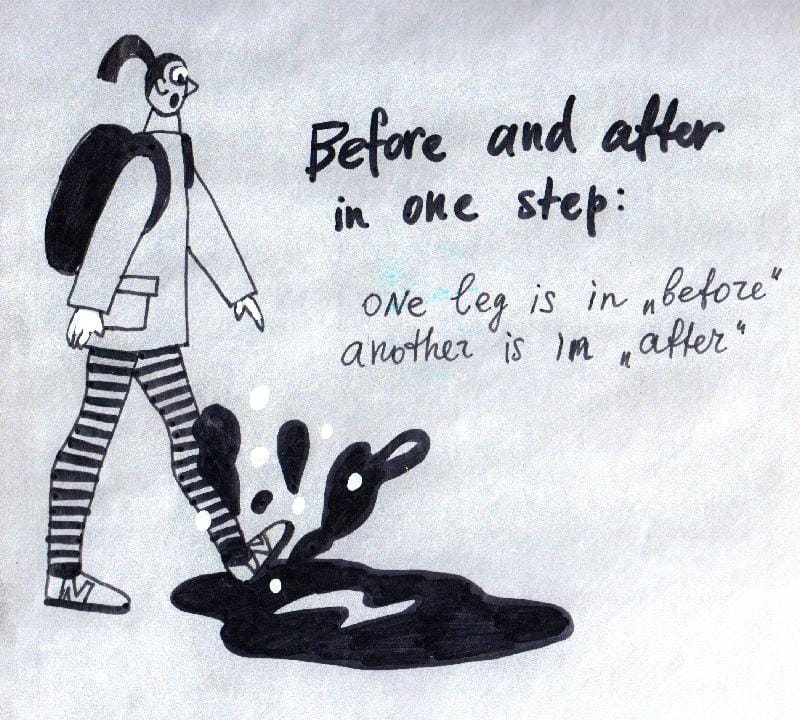 Before and after
in one step:
one leg is in „before“
another is in „after“